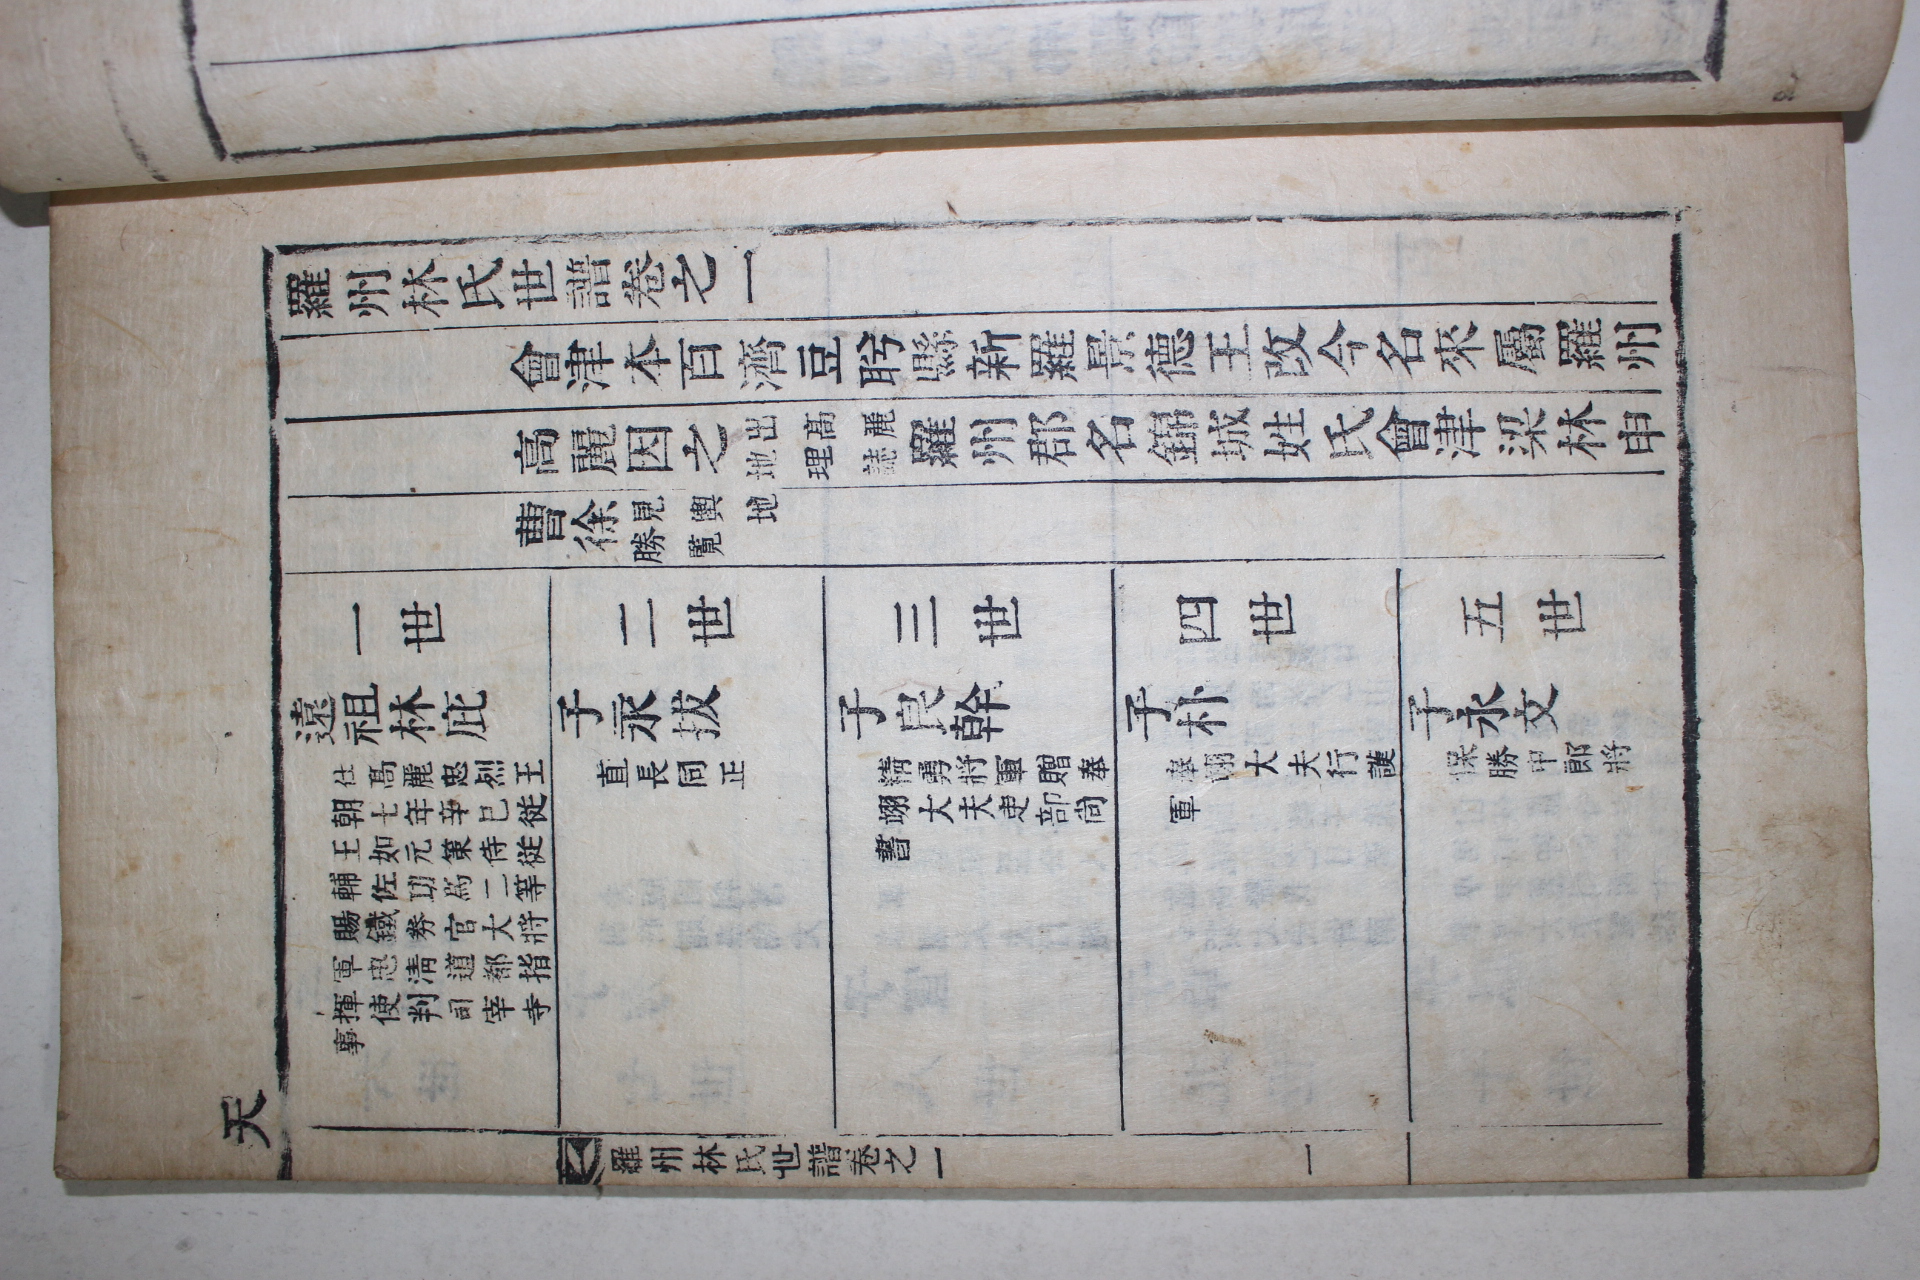 羅州林氏世譜卷之一
會津本百濟豆肹縣新羅景德王改今名來屬羅州
高麗因之出高麗地理誌羅州郡名錦城姓氏會津梁林申
曹徐見輿地勝覽
一世
遠祖林庇
仕高麗忠烈王
朝七年辛巳從
王如元策侍從
輔佐功爲二等
賜鐵券官大將
軍忠淸道都指
揮使判司宰寺
事
二世
子永拔
直長同正
三世
子良幹
精勇將軍贈奉
翊大夫吏部尙
書
四世
子朴
奉翊大夫行護
軍
五世
子永文
保勝中郞將
天
羅州林氏世譜卷之一
一